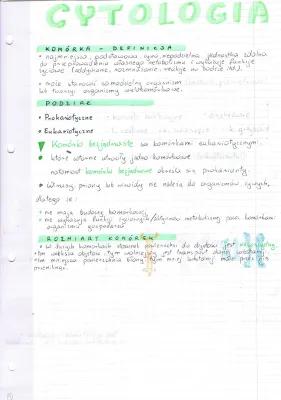 CYTOLOGIA
KOMÓRKA - DEFINICJA
• najmniejsza, podstawowa, żywa, niepodzielna jednostka zdolna
do przeprowadzania własnego metabolizmu i wykazuje funkcje
życiowe (oddychanie, rozmnażanie, reakcje na bodźce itd.)
• może stanowić samodzielny organizm
lub tworzyć organizmy wielokomórkowe.
PODZIAŁ
• Prokariotyczne
• Eukariotyczne
Komórki bezjądrzaste są komórkami eukariotycznymi
które wtórnie utraciły jądro komórkowe
natomiast komórki bezjądrowe określa się prokariontami.
• Wirusy, priony lub wiroidy nie należą do organizmów żywych,
dlatego że:
• nie mają budowy komórkowej
• nie wykazują funkcji życiowych metabolizmu poza komórkami
organizmu gospodarza.
ROZMIARY KOMÓREK
• W dużych komórkach stosunek powierzchni do objętości jest
•Im większa objętość tym wolniejszy jest transport
•Im mniejsza powierzchnia błony, tym mniej substancji może przez nią
przeniknąć.